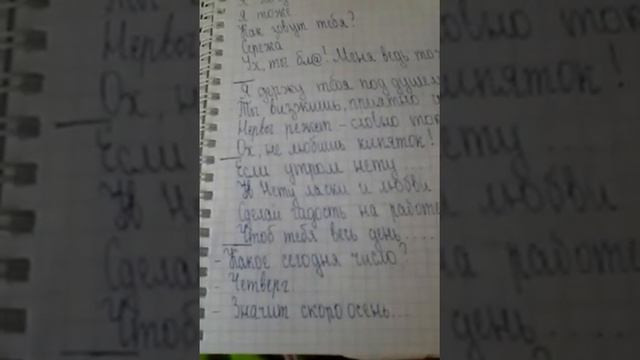 Я тоже
Как зовут тебя?
Серёжа
Ух, ты бл@! Меня ведь то
Я держу тебя под душем
Ты визжишь, приятно
Нервы режет - словно ток
Ох, не любишь кипяток!
Если утром нету
И нету ласки и любви
Сделай гадость на работе
Чтоб тебя весь день.....
- Какое сегодня число?
- Четверг
- Значит скоро осень...